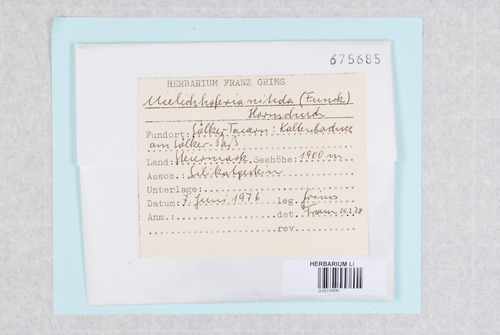 675685
HERBARIUM FRANZ GRIMS
Mielichhoferia nitida (Funck)
Hornschuch
Fundort: Sölker Tauern: Kaltenbachsee
am Sölker-Paß
Land: Steiermark Seehöhe: 1900 m
Assoz.: Silikatgestein
Unterlage:
Datum: 7. Juni 1976 leg. Grims
Anm.: det.
rev.
HERBARIUM LI